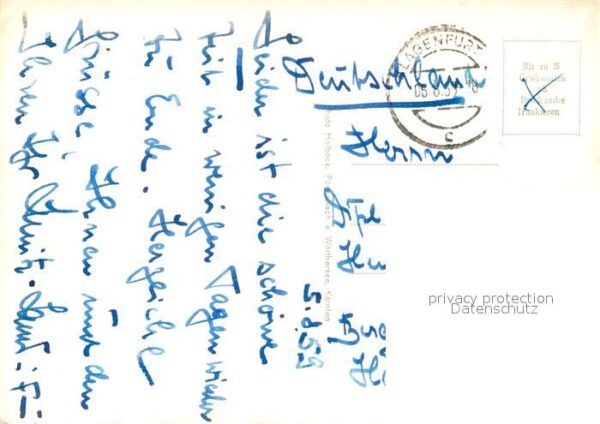 Leider ist die schöne
Zeit in wenigen Tagen wieder
zu Ende. Herzliche
Grüsse, Ihnen und den
Ihren Ihr
5.8.59
Deutschland
Herrn
Dipl
KLAGENFURT
c
Bis zu 5
Grußworten
als
Drucksache
frankieren
Foto Holback, Pörtschach a. Wörthersee, Kärnten
privacy protection
Datenschutz